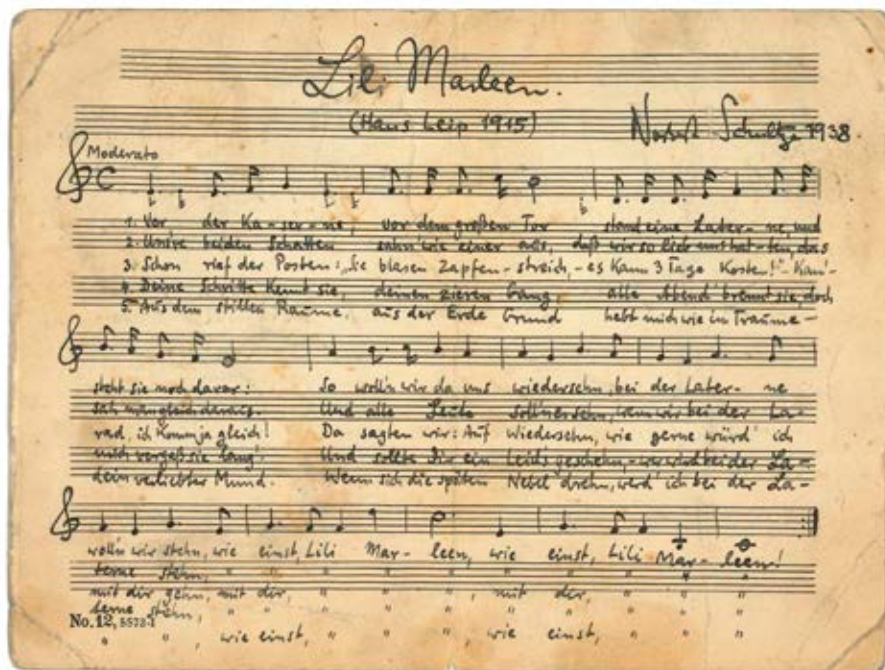 Lili Marleen.
(Hans Leip 1915) Norbert Schultze 1938
Moderato
1. Vor der Ka-ser-ne, vor dem großen Tor stand eine Later-ne, und
2. Uns're beiden Schatten sahn wie einer aus, daß wir so lieb uns hat-ten, das
3. Schon rief der Posten: "Sie blasen Zapfen-streich, - es kann 3 Tage kosten!" - Kam'-
4. Deine Schritte kennt sie, deinen zieren Gang, alle Abend brennt sie, doch
5. Aus dem stillen Raume, aus der Erde Grund hebt mich wie im Traume -
steht sie noch davor: So woll'n wir da uns wiedersehn, bei der Later-ne
sah man gleich daraus. Und alle Leute soll'n es sehn, wenn wir bei der La-
rad, ich komm ja gleich! Da sagten wir: Auf Wiedersehn, wie gerne würd' ich
mich vergaß sie lang'. Und sollte dir ein Leids geschehn, - wer wird bei der La-
dein verliebter Mund. Wenn sich die späten Nebel drehn, werd' ich bei der La-
woll'n wir stehn, wie einst, Lili Mar-leen, wie einst, Lili Mar-leen!
terne stehn, " " " " " " " "
mit dir gehn, mit dir, " " " , mit dir, " " "
terne stehn, " " " " " " " "
No. 12, 5573-I
" " , wie einst, " " " , wie einst, " " "